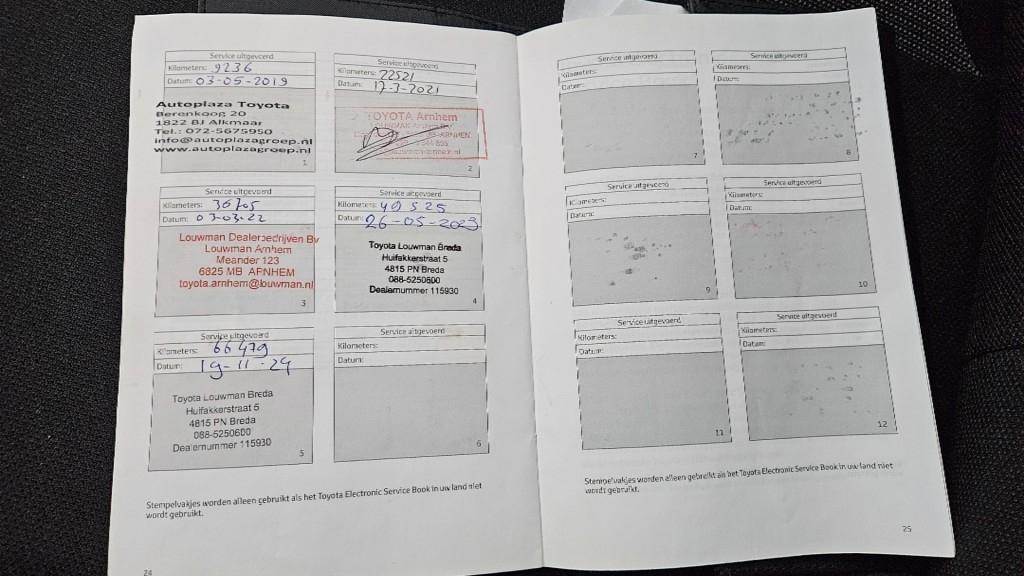 Service uitgevoerd
Kilometers: 9236
Datum: 03-05-2019
Autoplaza Toyota
Berenkoog 20
1822 BJ Alkmaar
Tel.: 072-5675950
info@autoplazagroep.nl
www.autoplazagroep.nl
1
Service uitgevoerd
Kilometers: 22521
Datum: 17-3-2021
TOYOTA Arnhem
2
Service uitgevoerd
Kilometers: 36705
Datum: 03-22
Louwman Dealerbedrijven Bv
Louwman Arnhem
Meander 123
6825 MB ARNHEM
toyota.arnhem@louwman.nl
3
Service uitgevoerd
Kilometers: 49525
Datum: 26-05-2023
Toyota Louwman Breda
Huifakkerstraat 5
4815 PN Breda
088-5250600
Dealernummer 115930
4
Service uitgevoerd
Kilometers: 66479
Datum: 19-11-24
Toyota Louwman Breda
Huifakkerstraat 5
4815 PN Breda
088-5250600
Dealernummer 115930
5
Service uitgevoerd
Kilometers:
Datum:
6
Stempelvakjes worden alleen gebruikt als het Toyota Electronic Service Book in uw land niet
wordt gebruikt.
24
Service uitgevoerd
Kilometers:
Datum:
7
Service uitgevoerd
Kilometers:
Datum:
8
Service uitgevoerd
Kilometers:
Datum:
9
Service uitgevoerd
Kilometers:
Datum:
10
Service uitgevoerd
Kilometers:
Datum:
11
Service uitgevoerd
Kilometers:
Datum:
12
Stempelvakjes worden alleen gebruikt als het Toyota Electronic Service Book in uw land niet
wordt gebruikt.
25